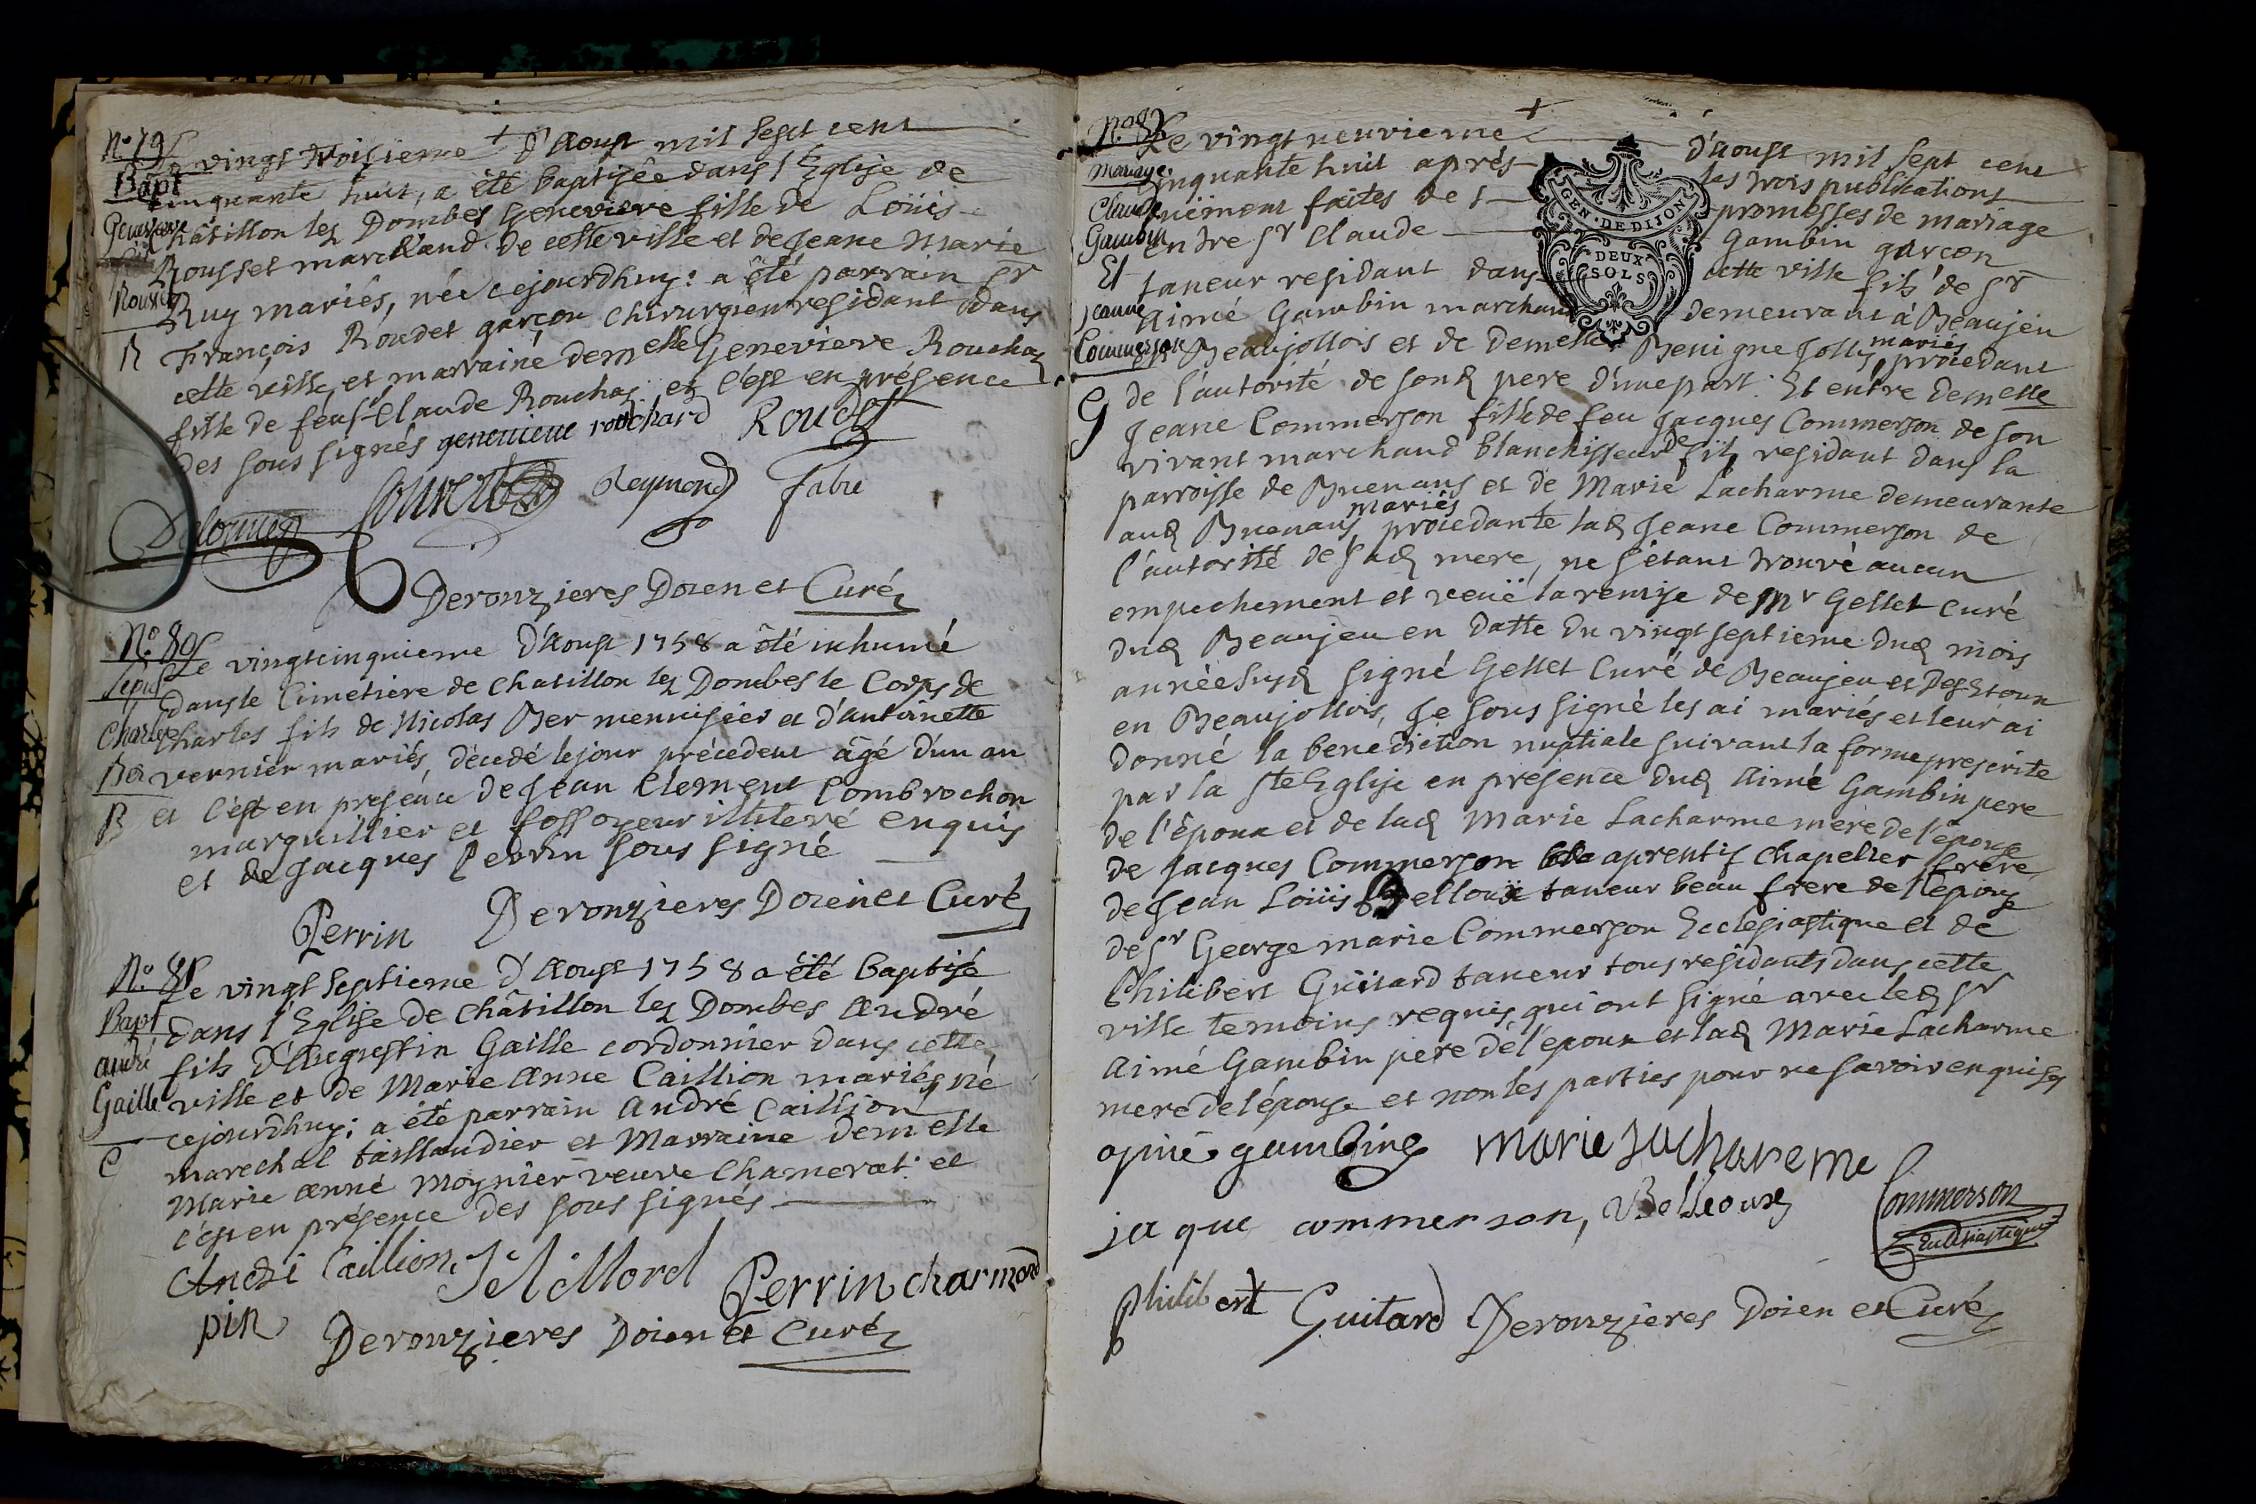 N.o 79
Bapt
Genevieve
Rousset
R
Le vingt troisieme d'Aoust mil sept cent
cinquante huit, a été baptisée dans l'Eglise de
Châtillon lez Dombes Genevieve fille de Loüis
Rousset marchand de cette ville et de Jeane Marie
Ruy mariés, née cejourdhuy: a été parrain Sr
François Roudet garçon chirurgien residant dans
cette ville, et marraine demelle Genevieve Rouchaz
fille de feu Sr Claude Rouchaz et c'est en présence
des sous signés genevieve rouchard Roudet
Delorme Souvert Reymond Fabre
Deronzieres Doien et Curé
N.o 80
Sepult
Charles
Ber
B
Le vingtcinquieme d'Aoust 1758 a été inhumé
dans le Cimetiere de Chatillon lez Dombes le Corps de
Charles fils de Nicolas Ber mennisier et d'antoinette
Vernier mariés, décedé le jour précedent âgé d'un an
et c'est en presence de Jean Clement Combrochon
marguillier et fossoyeur illiteré enquis
et de Jacques Perrin sous signé
Perrin Deronzieres Doien et Curé
N.o 81
Bapt
andré
Gaille
C
Le vingt septieme d'Aoust 1758 a été baptisé
dans l'Eglise de Châtillon lez Dombes André
fils d'Augustin Gaille cordonnier dans cette
ville et de Marie Anne Caillion mariés, né
cejourdhuy: a été parrain André Caillion
marechal taillandier et Marraine demelle
Marie Anne Moynier veuve Chamerat: et
c'est en présence des sous signés
André Caillion Perrin charmond
pin Deronzieres Doien et Curé
N.o 82
Mariage
Claude
Gambin
Et
Jeanne
Commerson
G
GEN. DE DIJON
DEUX
SOLS
Le vingt neuvieme d'aoust mil sept cent
cinquante huit après les trois publications
düement faites des promesses de mariage
entre Sr Claude Gambin garçon
taneur residant dans cette ville fils de Sr
Aimé Gambin marchand demeurant à Beaujeu
Beaujollois et de demelle Benigne Jolly mariés procedant
de l'autorité de sond pere d'une part. Et entre demelle
Jeane Commerson fille de feu Jacques Commerson de son
vivant marchand blanchisseur de fil, residant dans la
parroisse de Buenans et de Marie Lacharme demeurante
aud Buenans mariés procedante lad Jeane Commerson de
l'autorité de sad mere, ne s'étant trouvé aucun
empechement et veuë la remise de Mr Gellet curé
dud Beaujeu en datte du vingt septieme dud mois
année susd signé Gellet Curé de Beaujeu et Des Etoux
en Beaujollois, Je sous signé les ai mariés et leur ai
donné la benediction nuptiale suivant la forme prescrite
par la Ste Eglise en presence dud Aimé Gambin pere
de l'époux et de lad Marie Lacharme mere de l'épouse
de Jacques Commerson aprentif chapelier frere
de Jean Loüis Belloux taneur beau frere de l'épouse
de Sr George marie Commerson Ecclesiastique et de
Philibert Guitard taneur tous residants dans cette
ville temoins requis, qui ont signé avec led Sr
Aimé Gambin pere de l'époux et lad Marie Lacharme
mere de l'épouse et non les parties pour ne savoir enquises
aimé gambin marie Lachareme
ja que commerson, Belloux Commerson
Ecclesiastique
philibert Guitard Deronzieres Doien et Curé